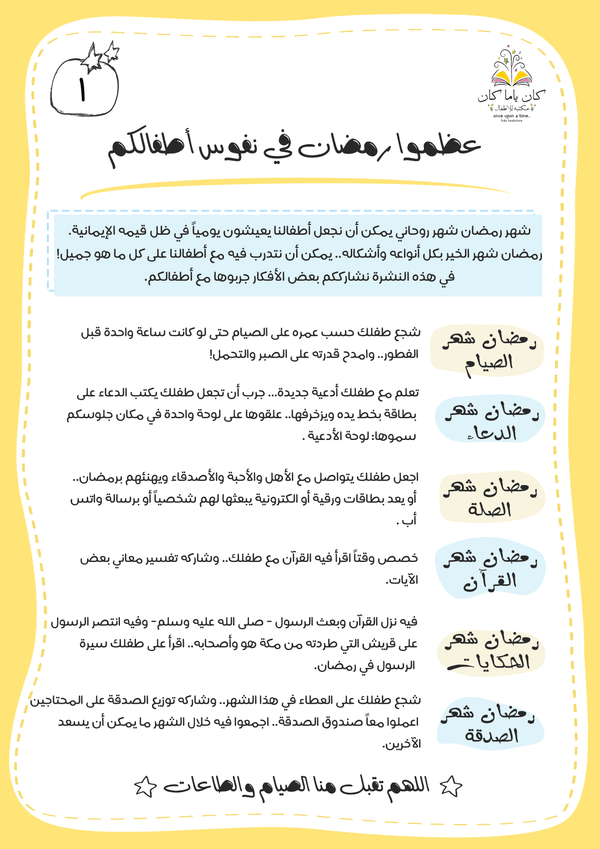 ١
كان ياما كان
مكتبة للأطفال
once upon a time..
kids bookstore
عظموا رمضان في نفوس أطفالكم
شهر رمضان شهر روحاني يمكن أن نجعل أطفالنا يعيشون يومياً في ظل قيمه الإيمانية.
رمضان شهر الخير بكل أنواعه وأشكاله.. يمكن أن نتدرب فيه مع أطفالنا على كل ما هو جميل!
في هذه النشرة نشارككم بعض الأفكار جربوها مع أطفالكم.
رمضان شهر
الصيام
شجع طفلك حسب عمره على الصيام حتى لو كانت ساعة واحدة قبل
الفطور.. وامدح قدرته على الصبر والتحمل!
رمضان شهر
الدعاء
تعلم مع طفلك أدعية جديدة... جرب أن تجعل طفلك يكتب الدعاء على
بطاقة بخط يده ويزخرفها.. علقوها على لوحة واحدة في مكان جلوسكم
سموها: لوحة الأدعية .
رمضان شهر
الصلة
اجعل طفلك يتواصل مع الأهل والأحبة والأصدقاء ويهنئهم برمضان..
أو يعد بطاقات ورقية أو الكترونية يبعثها لهم شخصياً أو برسالة واتس
أب .
رمضان شهر
القرآن
خصص وقتاً اقرأ فيه القرآن مع طفلك.. وشاركه تفسير معاني بعض
الآيات.
رمضان شهر
الحكايات
فيه نزل القرآن وبعث الرسول - صلى الله عليه وسلم- وفيه انتصر الرسول
على قريش التي طردته من مكة هو وأصحابه.. اقرأ على طفلك سيرة
الرسول في رمضان.
رمضان شهر
الصدقة
شجع طفلك على العطاء في هذا الشهر.. وشاركه توزيع الصدقة على المحتاجين
اعملوا معاً صندوق الصدقة.. اجمعوا فيه خلال الشهر ما يمكن أن يسعد
الآخرين.
اللهم تقبل منا الصيام والطاعات